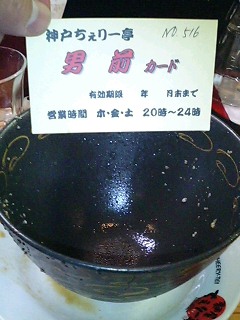 神戸ちぇりー亭
NO. 516
男前 カード
有効期限 年 月末まで
営業時間 木・金・土 20時〜24時